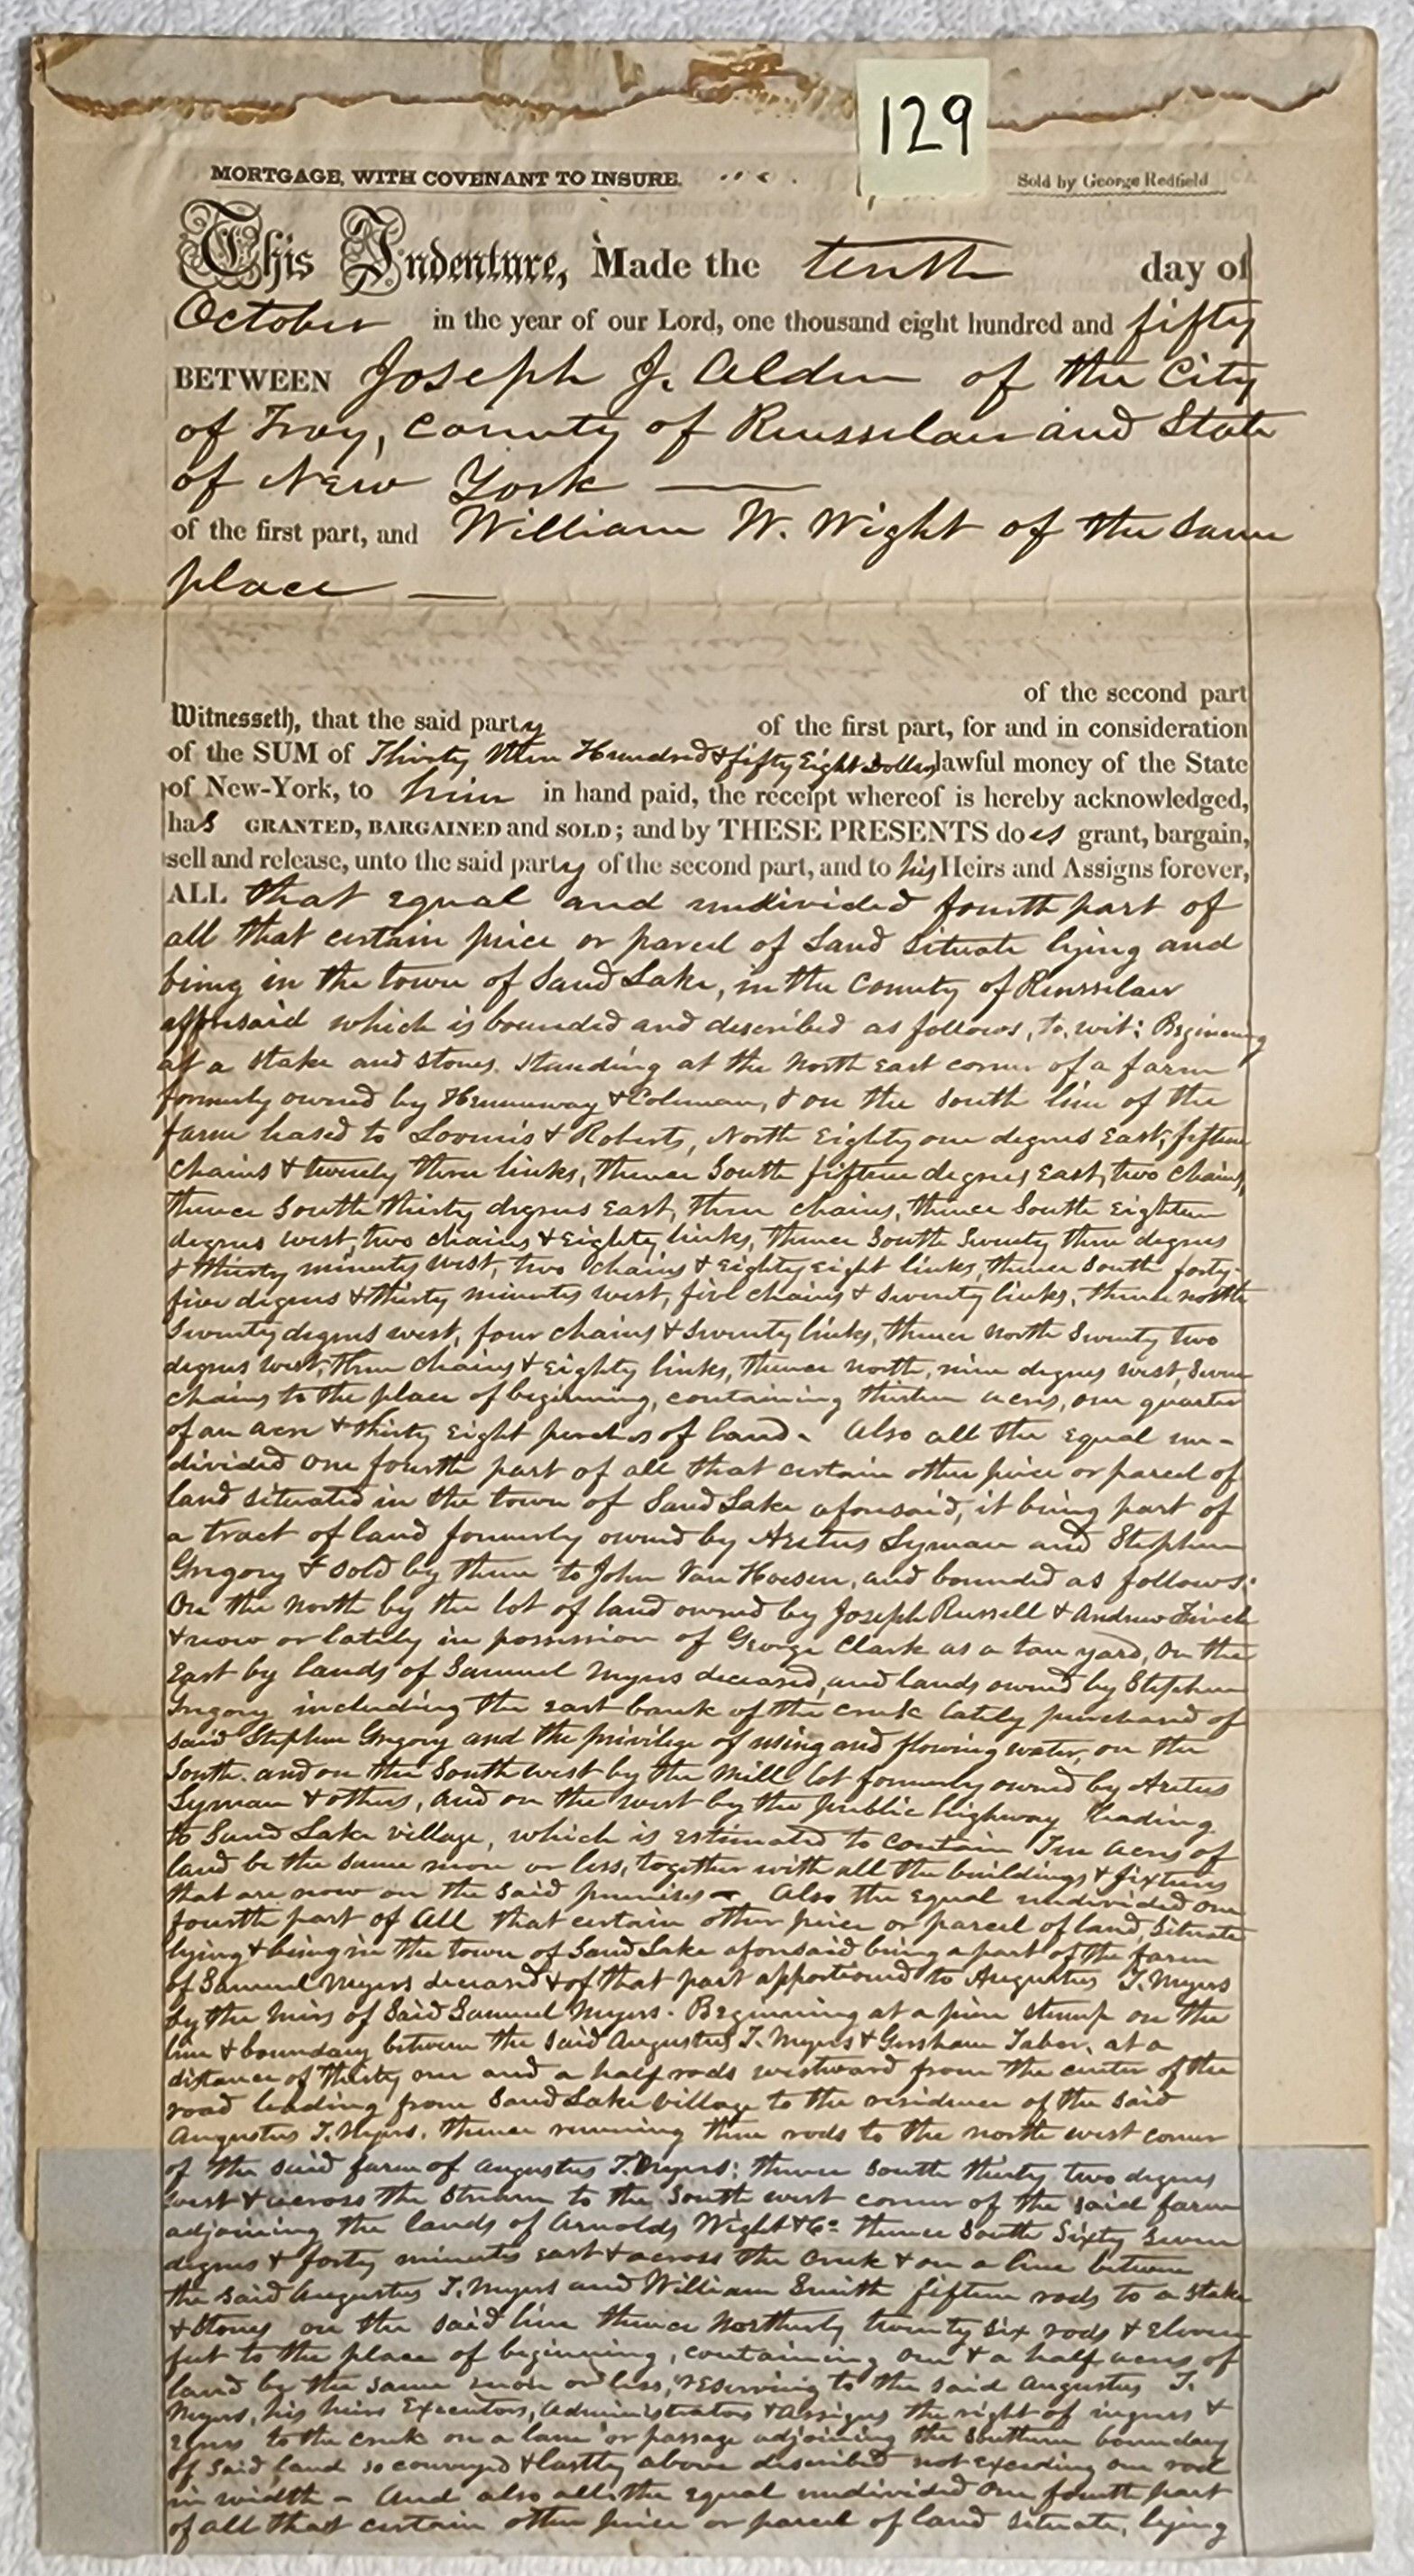 129
MORTGAGE, WITH COVENANT TO INSURE.
Sold by George Redfield
This Indenture, Made the tenth day of
October in the year of our Lord, one thousand eight hundred and fifty
BETWEEN Joseph J. Alden of the City
of Troy, County of Rensselaer and State
of New York
of the first part, and William W. Wight of the same
place
of the second part
Witnesseth, that the said party of the first part, for and in consideration
of the SUM of Thirty Hundred & fifty Eight Dollars lawful money of the State
of New-York, to him in hand paid, the receipt whereof is hereby acknowledged,
has GRANTED, BARGAINED and SOLD; and by THESE PRESENTS does grant, bargain,
sell and release, unto the said party of the second part, and to his Heirs and Assigns forever,
ALL that equal and undivided fourth part of
all that certain piece or parcel of Land situate lying and
being in the town of Sand Lake, in the County of Rensselaer
afforesaid which is bounded and described as follows, to, wit: Begining
at a stake and stones standing at the North East corner of a farm
formerly owned by Hemmway & Coleman, & on the South line of the
farm leased to Loomis & Roberts, North Eighty one degrees East, fifteen
chains & twenty three links, thence South fifteen degrees East, two chains,
thence South thirty degrees East, three chains, thence South Eighteen
degrees west, two chains & Eighty links, thence South Seventy three degrees
& thirty minutes west, two chains & Eighty eight links, thence South forty-
five degrees & thirty minutes west, five chains & seventy links, thence north
Seventy degrees west, four chains & Seventy links, thence north Seventy two
degrees west, three chains & Eighty links, thence north, nine degrees west, Seven
chains to the place of beginning, containing thirteen acres, one quarter
of an acre & thirty Eight perches of land. Also all the equal un-
divided one fourth part of all that certain other piece or parcel of
land situated in the town of Sand Lake aforesaid, it being part of
a tract of land formerly owned by Aretus Lyman and Stephen
Gregory & sold by them to John Van Hoesen, and bounded as follows:
On the North by the lot of land owned by Joseph Russell & Andrew Finch
& now or lately in possession of George Clark as a tan yard, on the
East by lands of Samuel Myers deceased, and lands owned by Stephen
Gregory including the east bank of the creek lately purchased of
said Stephen Gregory and the privilege of using and flowing water, on the
South. and on the South west by the Mill lot formerly owned by Aretus
Lyman & others, and on the west by the public highway leading
to Sand Lake village, which is estimated to contain acres of
land be the same more or less, together with all the buildings & fixtures
that are now on the said premises - Also the equal undivided one
fourth part of All that certain other piece or parcel of land, Situate
lying & being in the town of Sand Lake aforesaid being a part of the farm
of Samuel Myers deceased & of that part apportioned to Augustus T. Myers
by the heirs of Said Samuel Myers. Beginning at a pine stump on the
line & boundary between the said Augustus T. Myers & Gersham Tabor, at a
distance of thirty one and a half rods westward from the center of the
road leading from Sand Lake village to the residence of the said
Augustus T. Myers. thence running three rods to the north west corner
of the said farm of Augustus T. Myers; thence South thirty two degrees
west & across the Stream to the South west corner of the said farm
adjoining the lands of Arnolds Wight & Co. thence South Sixty Seven
degrees & forty minutes east & across the creek & on a line between
the said Augustus T. Myers and William Smith fifteen rods to a stake
& Stones on the said line thence Northerly twenty six rods & eleven
feet to the place of beginning, containing one & a half acres of
land be the same more or less, reserving to the said Augustus T.
Myers, his heirs Executors, Administrators & Assigns the right of ingress &
egress to the creek on a lane or passage adjoining the Southern boundary
of said land so conveyed & lastly above described not exceeding one rod
in width - And also all the equal undivided one fourth part
of all that certain other piece or parcel of land situate, lying